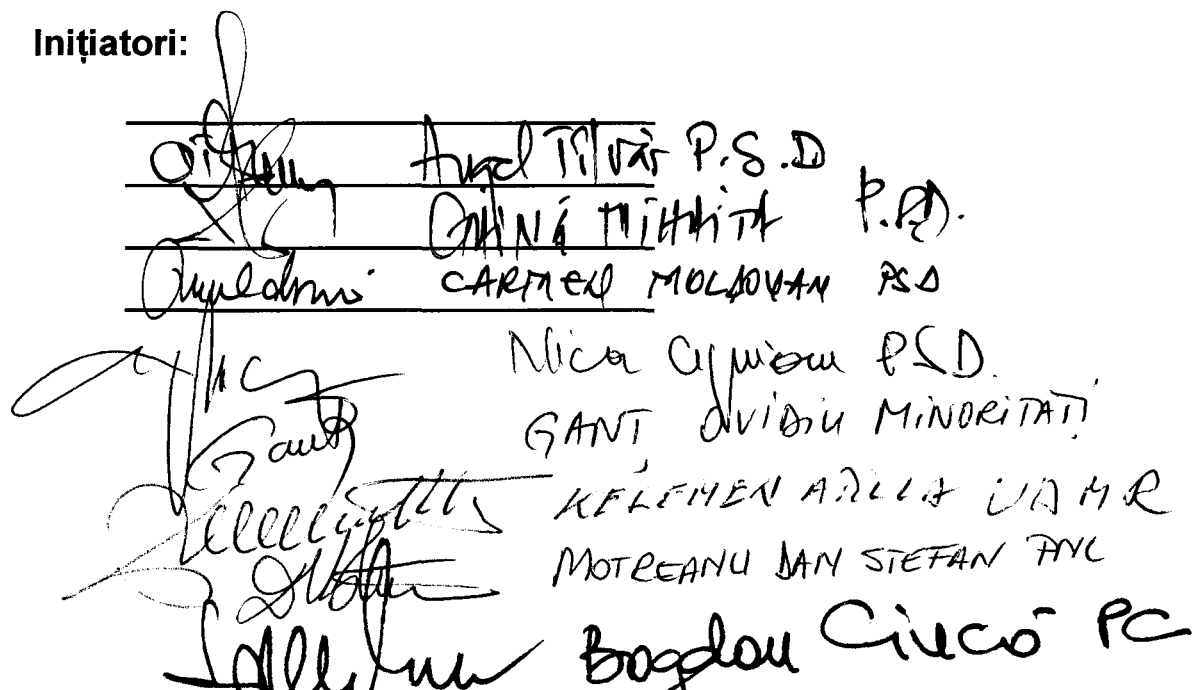 Inițiatori:
Angel Tîlvăr P.S.D
GĂINĂ MIHĂIȚĂ P.S.D.
CARMEN MOLDOVAN PSD
Nica Ciprian PSD.
GANȚ OVIDIU MINORITĂȚI
KELEMEN ATILLA UDMR
MOTREANU DAN STEFAN PNL
Bogdan Ciucă PC